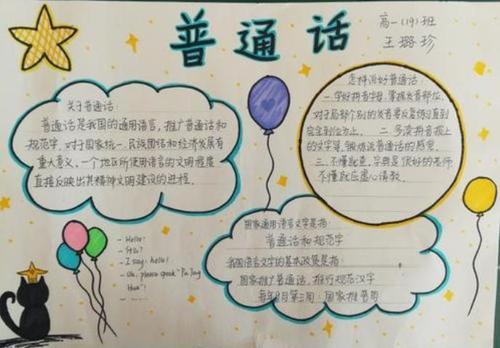 普通话
高一(19)班
王璐珍
关于普通话:
普通话是我国的通用语言,推广普通话和
规范字,对于国家统一、民族团结和经济发展有
重大意义,一个地区所使用语言的文明程度
直接反映出其精神文明建设的进程。
怎样说好普通话:
一.学好拼音字母,掌握发音部位,
对于局部个别的发音要反复练习直到
完全到位为止。二.多读拼音报上
的文字等,锻炼说普通话的感觉。
三.不懂就查,字典是很好的老师
不懂就应虚心请教。
- Hello!
- Sir?
- I say, hello!
- Uh, please speak "Pu Tong
Hua"!
- ......
国家通用语言文字是指:
普通话和规范字
我国语言文字的基本政策是指:
国家推广普通话,推行规范汉字
每年9月第三周:国家推普周